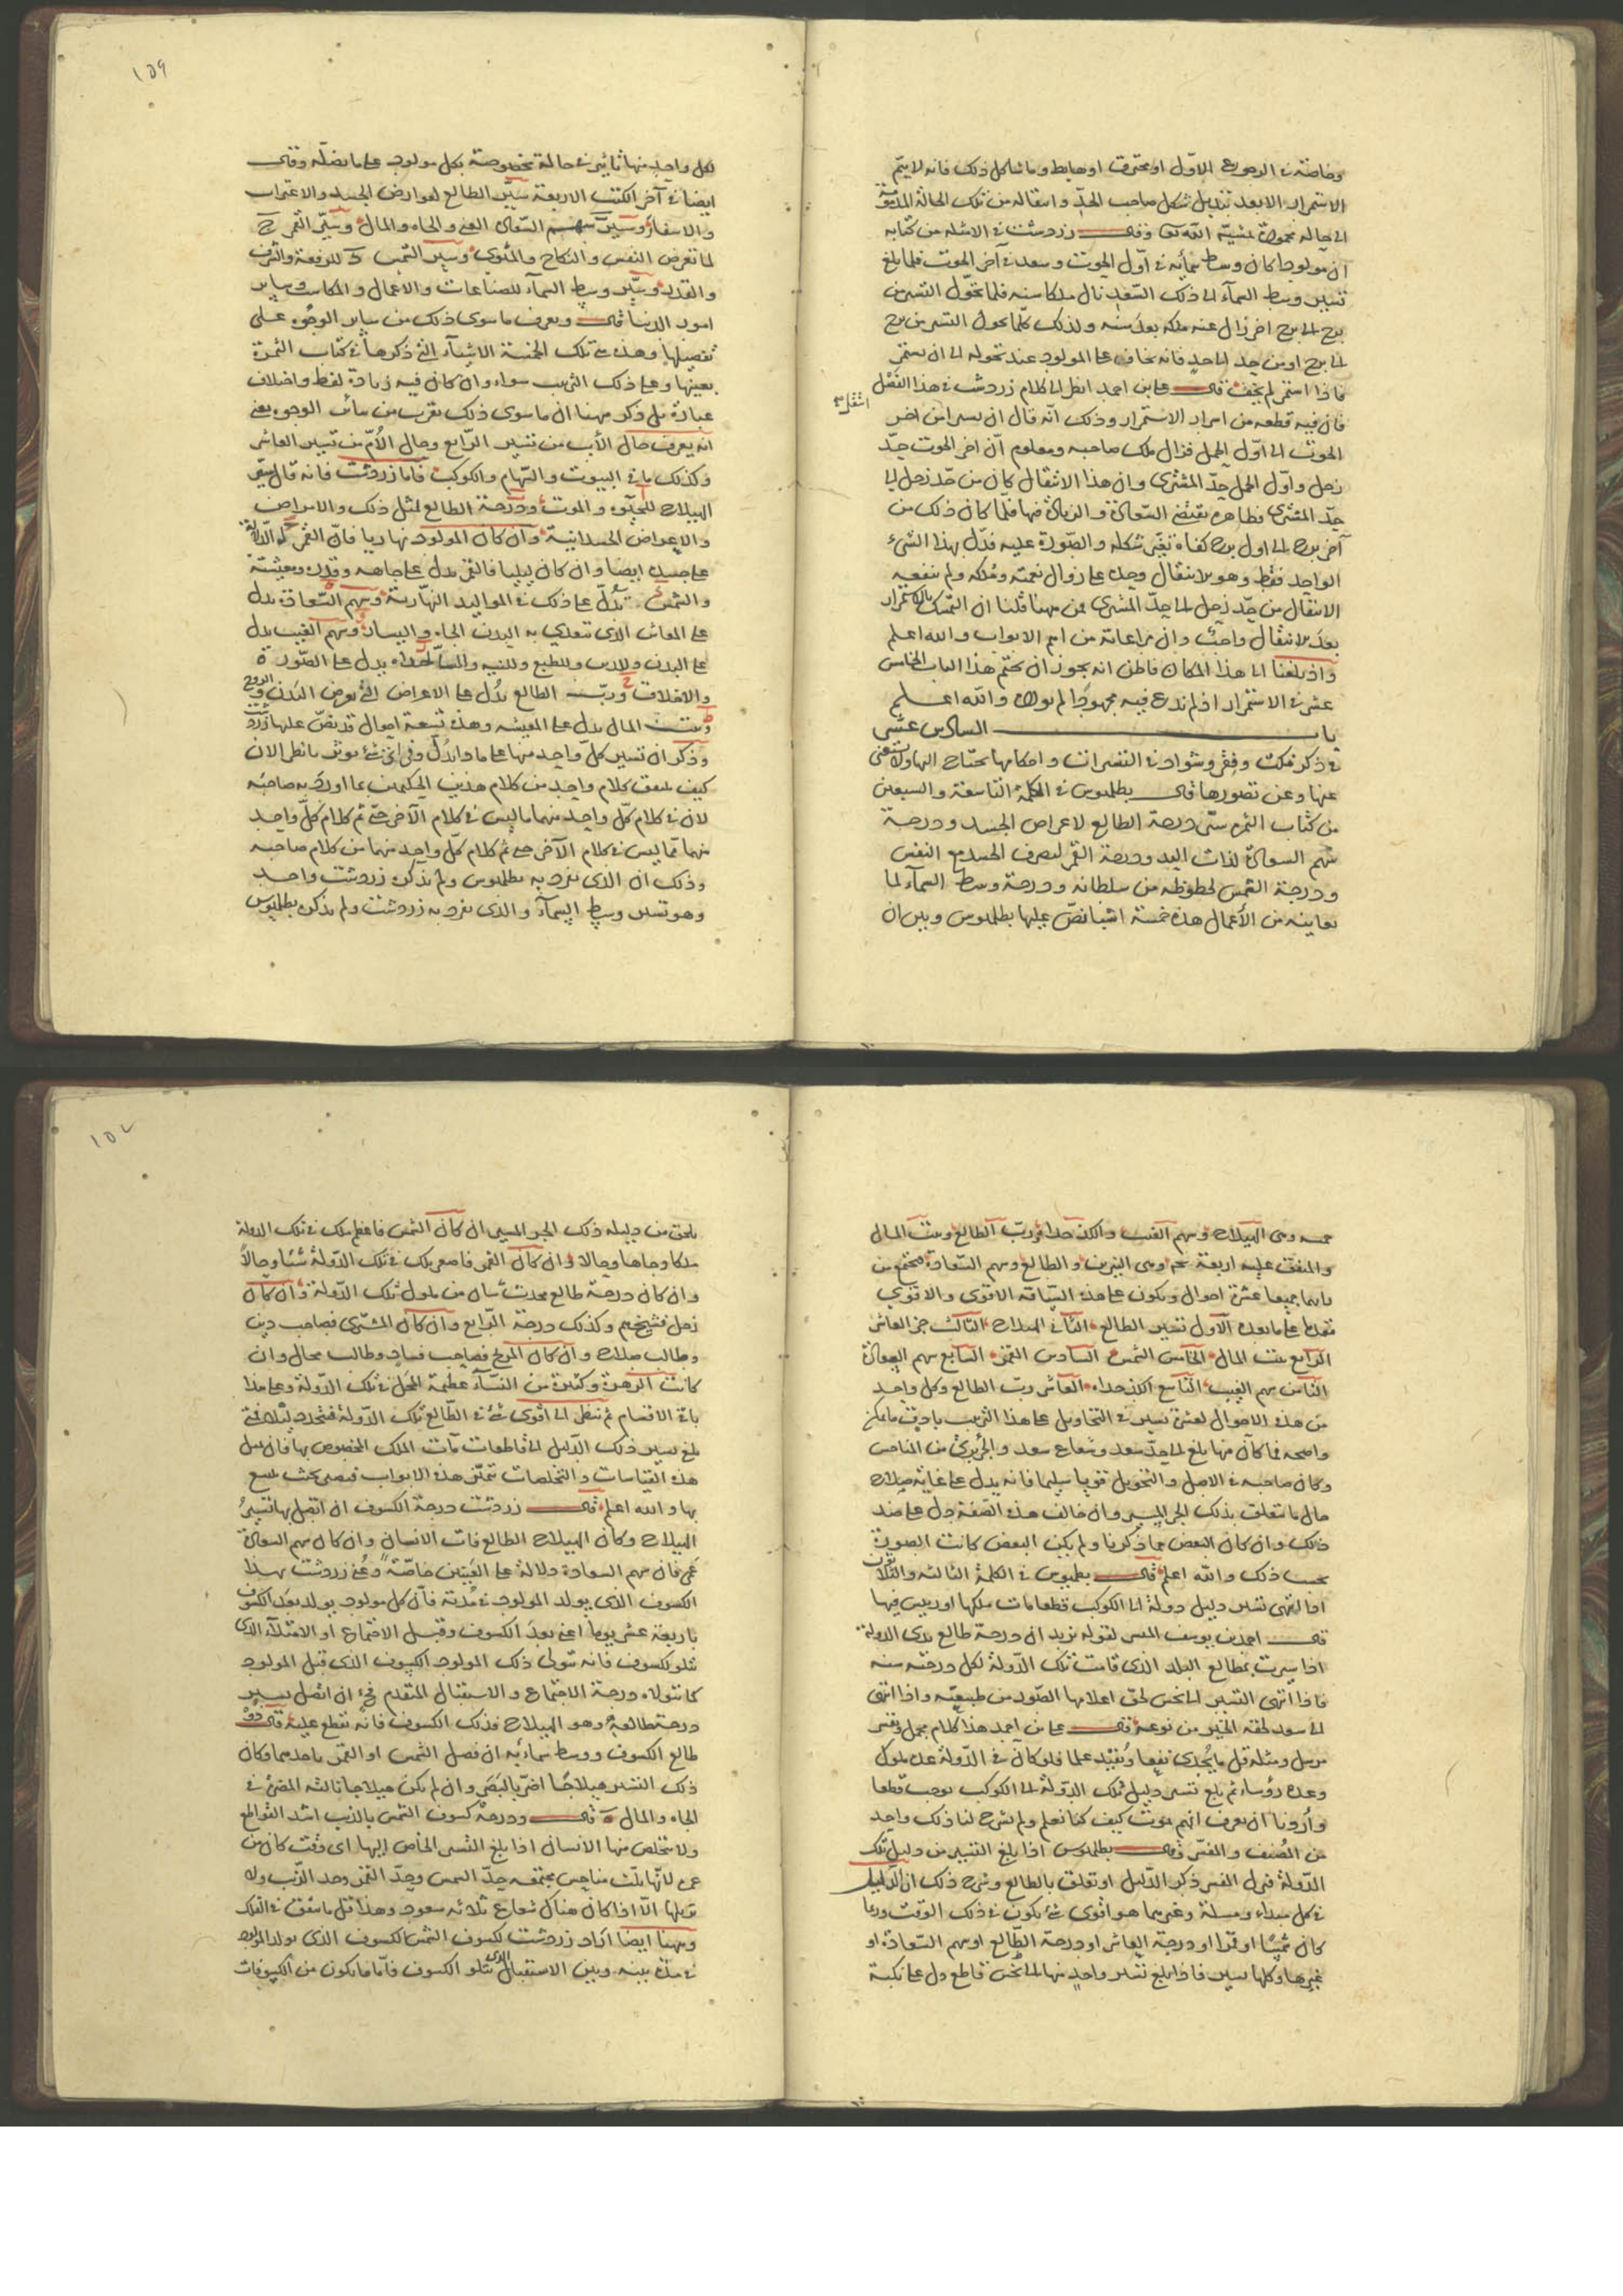 وخاصة في الرجوع الاول او محترق او هابط وما شاكل ذلك فانه لا يتم
الاستمرار الا بعد تبديل شكل صاحب الحد وانتقاله من تلك الحالة المذمومة
الى حاله محمودة بمشية الله تعا وقال زردشت في الامثله من كتابه
ان مولودا كان وسط سمائه في اول الحوت وسعد في آخر الحوت فلما بلغ
تسيير وسط السمآء الى ذلك السعد نال ملكا سنه فلما تحول التسيير من
برج الى برج اخر زال عنه ملكه بعد سنه ولذلك كلما تحول التسيير من برج
الى برج او من حد الى حد فانه يخاف على المولود عند تحوله الى ان يستمر
فاذا استمر لم يخف قال على بن احمد انظر الى كلام زردشت في هذا الفصل
فان فيه قطعه من اسرار الاستمرار وذلك انه قال ان يسير من اخر
انتقل
الحوت الى اول الحمل فزال ملك صاحبه ومعلوم ان اخر الحوت حد
زحل واول الحمل حد المشترى وان هذا الانتقال كان من حد زحل الى
حد المشترى فظاهره يقتضى السعادة والزيادة فيها فلما كان ذلك من
آخر برج الى اول برج كفاه تغير شكله والصورة عليه فدل بهذا الشئ
الواحد فقط وهو الانتقال وحده على زوال نعمته وملكه ولم ينفعه
الانتقال من حد زحل الى حد المشترى فمن ههنا قلنا ان التمسك بالاستمرار
بعد الانتقال واجب وان مراعاته من اهم الابواب والله اعلم
واذ بلغنا الى هذا المكان فاظن انه يجوز ان نختم هذا الباب الخامس
عشر في الاستمرار اذ لم ندع فيه مجهودا والله اعلم
باب السادس عشر
في ذكر نكت وفقر وشواذ في التسييرات واحكامها يحتاج اليها ولا يستغنى
عنها وعن تصورها قال بطلميوس في الكلمة التاسعة والسبعين
من كتاب الثمره سير درجة الطالع لاعراض الجسد ودرجة
سهم السعادة لذات اليد ودرجة القمر لتصرف الجسد مع النفس
ودرجة الشمس لحظوظه من سلطانه ودرجة وسط السمآء لما
يعاينه من الأعمال هذه خمسة اشيا نص عليها بطلميوس وبين ان
١٥٩
لكل واحد منها تاثير في حالة مخصوصة بكل مولود على ما فصله وقال
ايضا في آخر الكتب الاربعة سير الطالع لعوارض الجسد والاغتراب
والاسفار وسير سهم السعادة الغنى والجاه والمال وسير القمر ج
لما تعرض النفس والنكاح والمثوى وسير الشمس د للرفعة والشرف
والقدر وسير وسط السمآء للصناعات والاعمال والمكاسب وساير
امور الدنيا قال ويعرف ما سوى ذلك من ساير الوجوه على
تفصيلها وهذه تلك الخمسة الاشيآء التي ذكرها في كتاب الثمرة
بعينها وعلى ذلك الترتيب سواء وان كان فيه زيادة لفظ واختلاف
عبارة بلى ذكر ههنا ان ما سوى ذلك يعرف من سائر الوجوه يعنى
انه يعرف حال الأب من تسيير الرابع وحال الأم من تسيير العاشر
وكذلك باقي البيوت والسهام والكوكب فاما زردشت فانه قال سير
الهيلاج للحيوه والموت ودرجة الطالع لمثل ذلك والامراض
والاعراض الجسدانية وان كان المولود نهاريا فان القمر له الدلالة
على جسده ايضا وان كان ليليا فالقمر يدل على جاهه وقدره ومعيشته
والشمس تدل على ذلك في المواليد النهارية وسهم السعادة يدل
على المعاش الذي يتعدى به البدن الجاه واليسار وسهم الغيب يدل
على البدن والدين وللطبع والنيه والكدخداه يدل على الصورة
والاخلاق ورب الطالع يدل على الاعراض التي تعرض البدن والروح
وبيت المال يدل على المعيشه وهذه تسعة احوال قد نص عليها زردشت
وذكر ان تسيير كل واحد منها على ما دل وفي اى شئ يوثر فانظر الان
كيف يتفق كلام واحد من كلام هذين الحكيمين بما اورد به صاحبه
لان في كلام كل واحد منهما ما ليس في كلام الآخر حتى تم كلام كل واحد
منهما مما ليس في كلام الآخر حتى تم كلام كل واحد منهما من كلام صاحبه
وذلك ان الذى تفرد به بطلميوس ولم يذكره زردشت واحد
وهو تسيير وسط السمآء والذى تفرد به زردشت ولم يذكره بطلميوس
خمسه وهى الهيلاج وسهم الغيب والكدخداه ورب الطالع وبيت المال
والمتفق عليه اربعة وهى النيرين والطالع وسهم السعادة فيجتمع من
باينها جميعا عشرة احوال ويكون على هذه السياقه الاقوى والاقوى
مقدما على ما بعده الاول تسيير الطالع الثاني الهيلاج الثالث جز العاشر
الرابع بيت المال الخامس الشمس السادس القمر السابع سهم السعادة
الثامن سهم الغيب التاسع الكدخداه العاشر رب الطالع وكل واحد
من هذه الاحوال العشرة يسير في التحاويل على هذا الترتيب بادق ما يمكن
واصحه فما كان منها بلغ الى حد سعد وشعاع سعد والجز برئ من المناحس
وكان صاحبه في الاصل والتحويل قويا سليما فانه يدل على غاية صلاح
حال ما يتعلق بذلك الجز المسير وان خالف هذه الصفة دل على ضد
ذالك وان كان البعض مما ذكرنا ولم يكن البعض كانت الصورة
بحسب ذلك والله اعلم قال بطلميوس في الكلمة الثالثه والثلاثون
اذا انتهى تسيير دليل دولة الى الكوكب قطعا مات ملكها او رييس فيها
قال احمد بن يوسف المفسر لقوله يريد ان درجة طالع بدى الدولة
اذا سيرت بمطالع البلد الذى قامت تلك الدولة لكل درجة سنه
فاذا انتهى التسيير الى نحس لحق اعلامها الضرر من طبيعته واذا انتهى
الى سعد لحقه الخير من نوعه قال على بن احمد هذا كلام مجمل وتفسير
مرسل ومثله قل ما يجدى نفعا ويفيد علما فلو كان في الدولة عده ملوك
وعده رؤساء ثم بلغ تسيير دليل تلك الدولة الى الكوكب يوجب قطعا
واردنا ان نعرف ايهم يموت كيف كنا نعلم ولم يشرح لنا ذلك واحد
من المصنف والمفسر قال بطلميوس اذا بلغ التسيير من دليل تلك
الدولة فترك المفسر ذكر الدليل او تعلق بالطالع وشرح ذلك ان الدليل
في كل مبداء ومسلة وغيرهما هو اقوى شئ يكون في ذلك الوقت وربما
كان شمسا او قمرا او درجة العاشر او درجة الطالع او سهم السعادة او
غيرها وكلها تسير فاذا بلغ تسيير واحد منها الى نحس قاطع دل على نكبة
١٥٧
تلحق من دليله ذلك الجز المسير ان كان الشمس فاعظم ملك في تلك الدولة
ملكا وجاها وحالا وان كان القمر فاصغر ملك في تلك الدولة سنا وحالا
وان كان درجة طالع فحدث شاب من ملوك تلك الدولة وان كان
زحل فشيخهم وكذلك درجة الرابع وان كان المشترى فصاحب دين
وطالب صلاح وان كان المريخ فصاحب فساد وطالب محال وان
كانت الزهرة وكبيرة من النسآء عظيمة المحل في تلك الدولة وعلى هذا
باقي الاقسام ثم ننظر الى اقوى شئ في الطالع تلك الدولة
بلغ تسيير ذلك الدليل الى قاطعات مآت الملك المخصوص بها فان
هذه القياسات والتخلصات تتميز هذه الابواب فيصير بحيث ينتفع
بها والله اعلم قال زردشت درجة الكسوف ان اتصل بها تسيير
الهيلاج وكان الهيلاج الطالع مات الانسان وان كان سهم السعادة
عمى فان سهم السعادة دلالة على العينين خاصة وعنى زردشت بهذا
الكسوف الذى يولد المولود في مدته فان كل مولود يولد بعد الكسوف
باربعة عشر يوما اعنى بعد الكسوف وقبل الاجتماع او الامتلآء الذى
يتلو كسوف فانه يتولى ذلك المولود الكسوف الذى قبل المولود
كما تتولاه درجة الاجتماع والاستقبال المتقدم فمتى ان اتصل تسيير
درجة طالعه وهو الهيلاج فذلك الكسوف فانه نقطع عليه قال
طالع الكسوف ووسط سمائه ان فصل الشمس او القمر باحدهما فكان
ذلك التسيير هيلاجا اضر بالبصر وان لم يكن هيلاجا نالته المضرة في
الجاه والمال قال ودرجة كسوف الشمس بالذنب اشد القواطع
ولا يتخلص منها الانسان اذا بلغ التسيير الخاص اليها اى وقت كان من
عمره لانها ثلث مناحس مجتمعه حد الشمس وحد القمر وحد الذنب وله
الا اذا كان هناك شعاع ثلاثه سعود وهذا قل ما يتفق في الفلك
وههنا ايضا اراد زردشت لكسوف الشمس الكسوف الذى يولد المولود
في مدة بينه وبين الاستقبال الذى يتلو الكسوف فاما ما يكون من الكسوفات